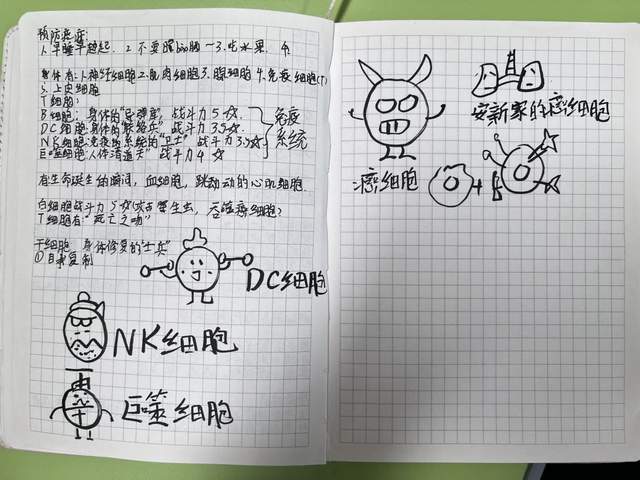 预防癌症:
1.早睡早起. 2.不要 3.吃水果.
体有:1.神经细胞2.肌肉细胞3.腺细胞4.免疫细胞(T)
5.上皮细胞
T细胞:
B细胞:身体的"导弹库",战斗力5☆.
DC细胞:身体的"侦察兵"战斗力3.5☆.
NK细胞:免疫系统的"卫士"战斗力3.5☆.
巨噬细胞:人体清道夫"战斗力4☆
免疫
系统
有生命诞生的瞬间,血细胞,跳动动的心肌细胞
白细胞战斗力5☆攻击寄生虫,吞噬癌细胞?
T细胞有"死亡之吻"
干细胞 身体修复的"士兵"
①自我复制
DC细胞
NK细胞
巨噬细胞
癌细胞
安新家的癌细胞